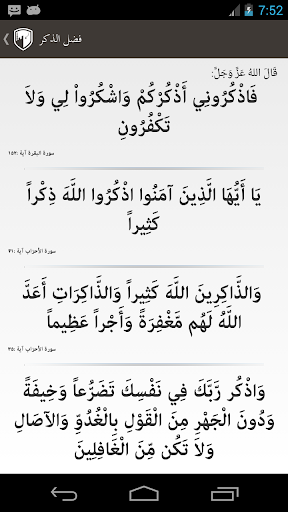 7:52
فضل الذكر
قَالَ اللهُ عَزَّ وَجَلَّ:
فَاذْكُرُونِي أَذْكُرْكُمْ وَاشْكُرُواْ لِي وَلاَ
تَكْفُرُونِ
سورة البقرة آية :١٥٢
يَا أَيُّهَا الَّذِينَ آمَنُوا اذْكُرُوا اللَّهَ ذِكْراً
كَثِيراً
سورة الأحزاب آية :٤١
وَالذَّاكِرِينَ اللَّهَ كَثِيراً وَالذَّاكِرَاتِ أَعَدَّ
اللَّهُ لَهُم مَّغْفِرَةً وَأَجْراً عَظِيماً
سورة الأحزاب آية :٣٥
وَاذْكُر رَّبَّكَ فِي نَفْسِكَ تَضَرُّعاً وَخِيفَةً
وَدُونَ الْجَهْرِ مِنَ الْقَوْلِ بِالْغُدُوِّ وَالآصَالِ
وَلاَ تَكُن مِّنَ الْغَافِلِينَ